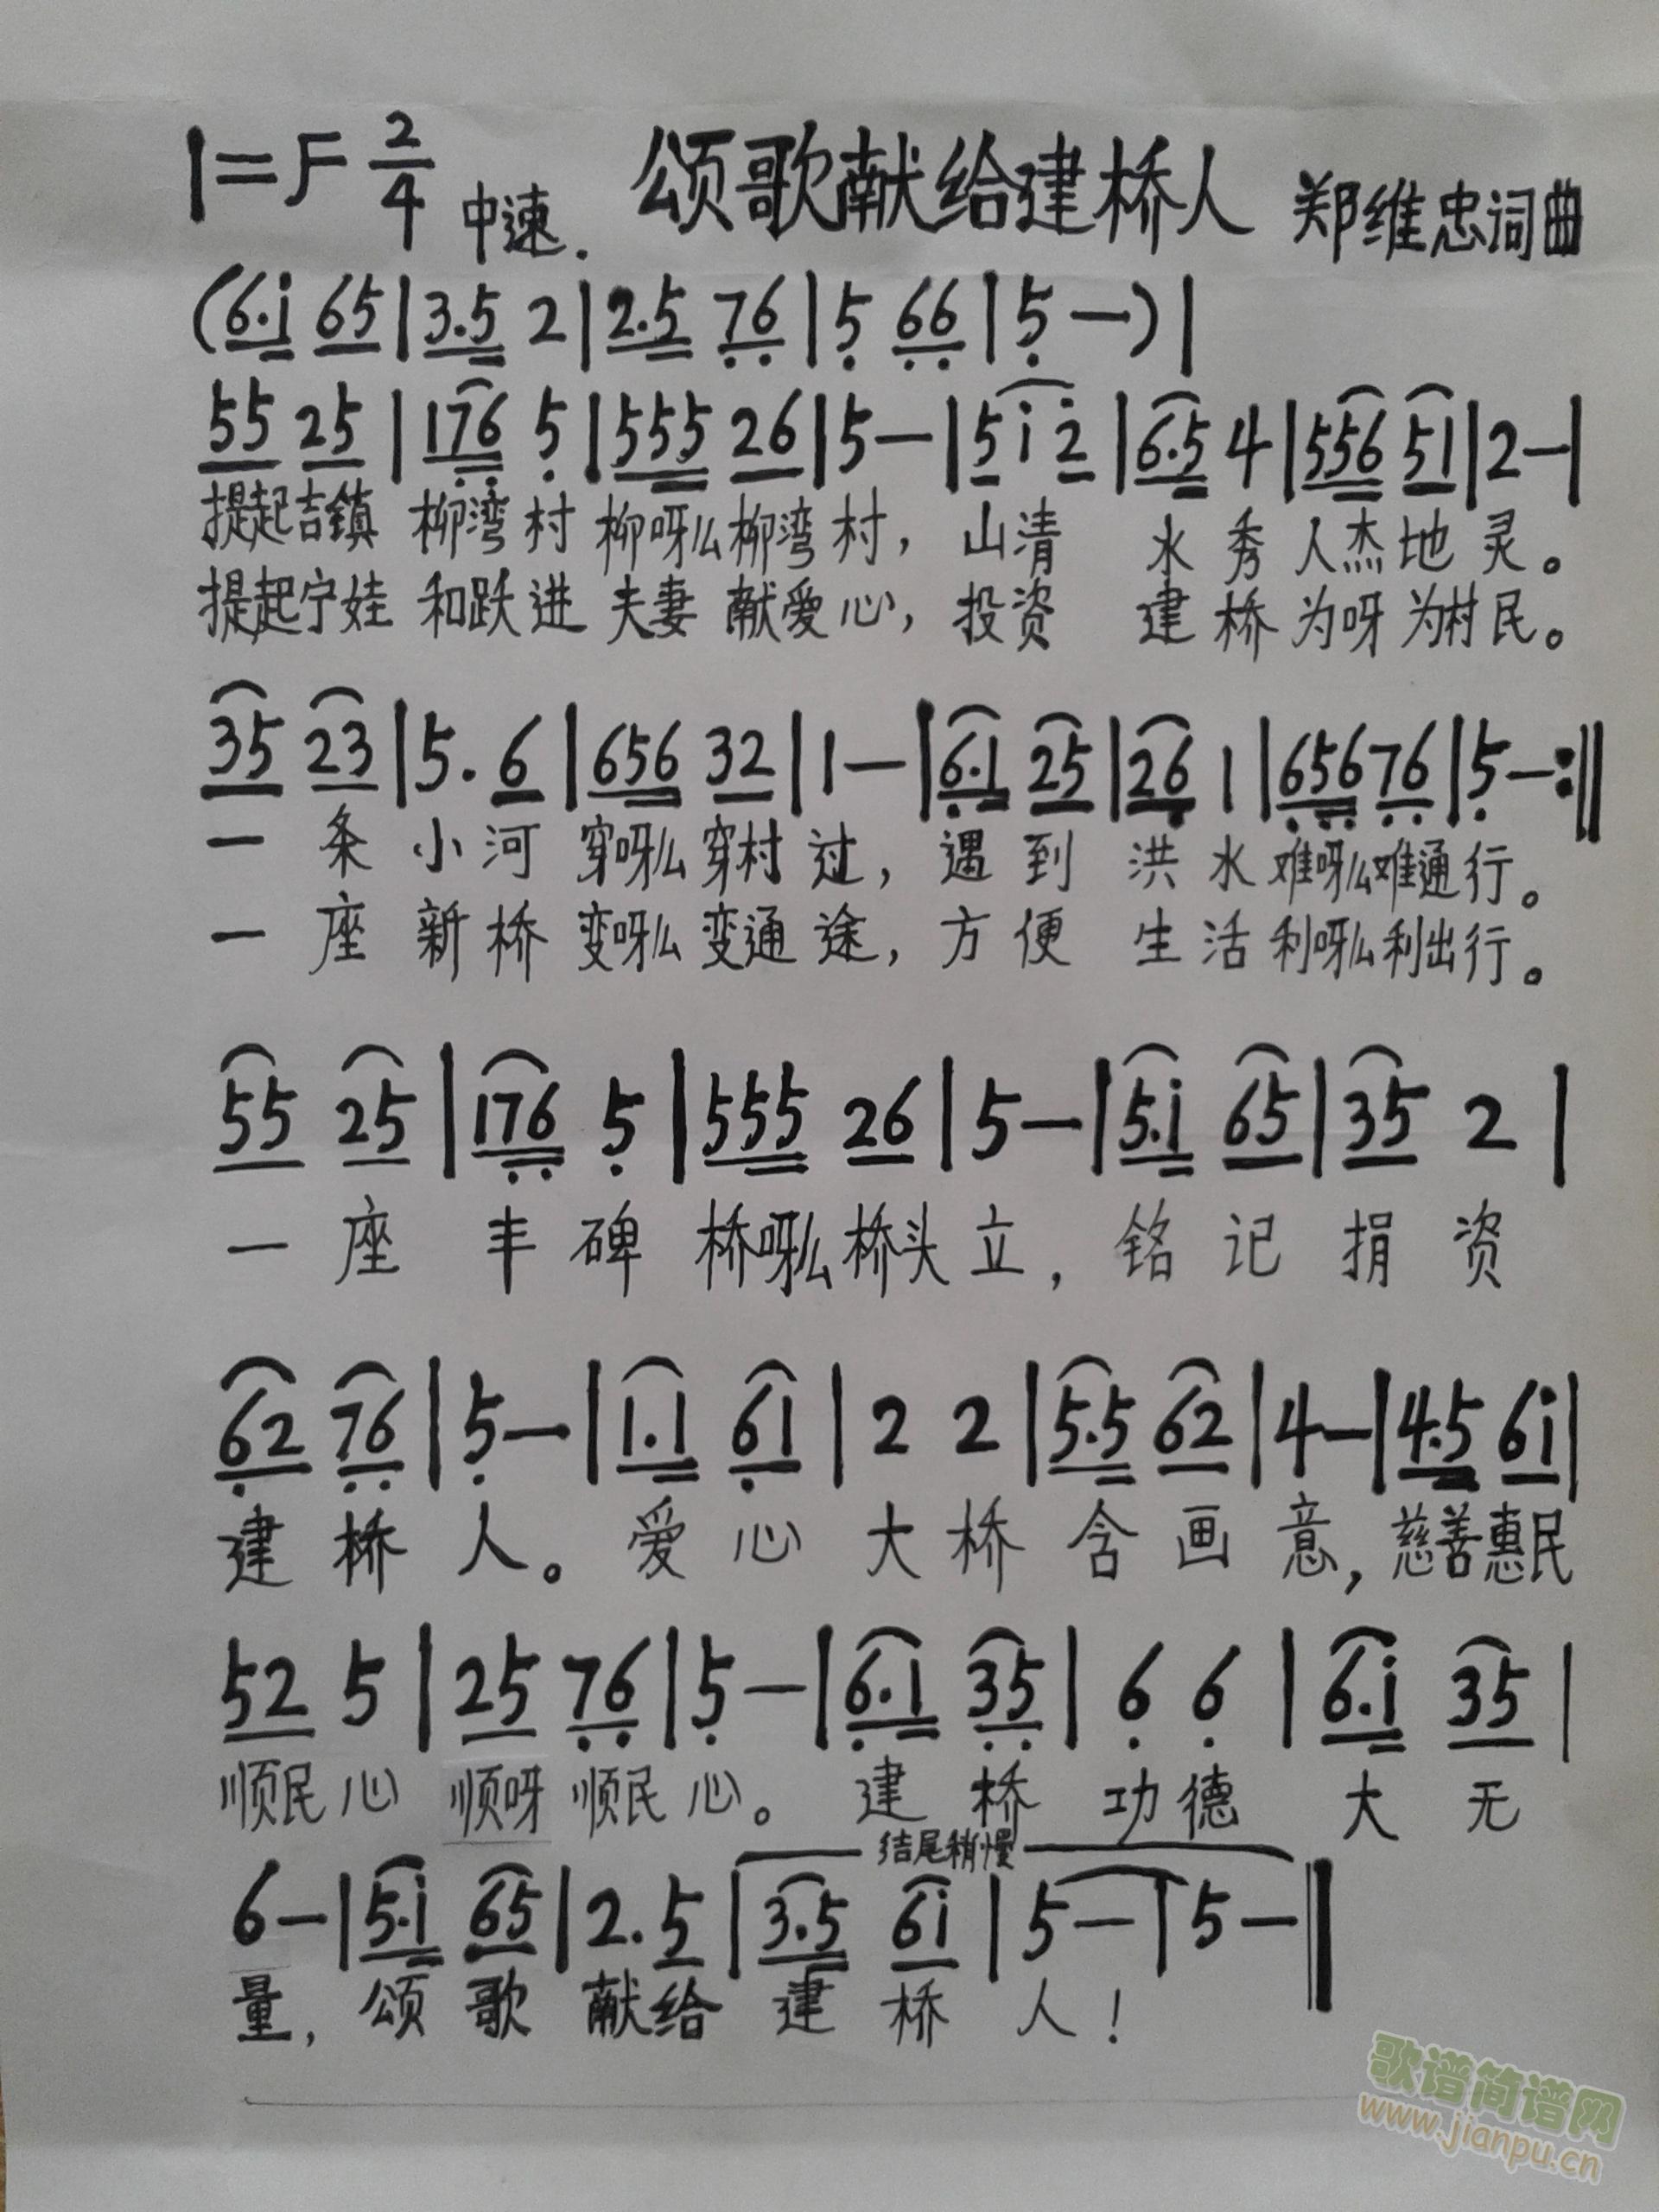 1=F 2/4 中速. 颂歌献给建桥人 郑维忠词曲
(6·i 65|3.5 2|2.5 76|5 66|5 —)|
55 25|176 5|555 26|5—|5 i 2|6.5 4|556 51|2—|
提起吉镇 柳湾村 柳呀么柳湾村，山清 水秀人杰地灵。
提起宁娃 和跃进 夫妻 献爱心，投资 建桥为呀为村民。
35 23|5. 6|656 32|1—|6.1 25|26 1|656 76|5—:‖
一条小河 穿呀么穿村过，遇到 洪水难呀么难通行。
一座新桥 变呀么变通途，方便 生活利呀么利出行。
55 25|176 5|555 26|5—|5.i 65|35 2|
一座 丰碑 桥呀么桥头立，铭记捐资
62 76|5—|1.1 61|2 2|5.5 62|4—|4.5 6i|
建桥人。爱心大桥含画意，慈善惠民
52 5|25 76|5—|6.1 35|6 6|6.i 35|
顺民心 顺呀顺民心。建桥功德 大无
结尾稍慢
6—|5.i 65|2. 5|3.5 6i|5—|5—‖
量，颂歌献给建桥人！
歌谱简谱网
www.jianpu.cn